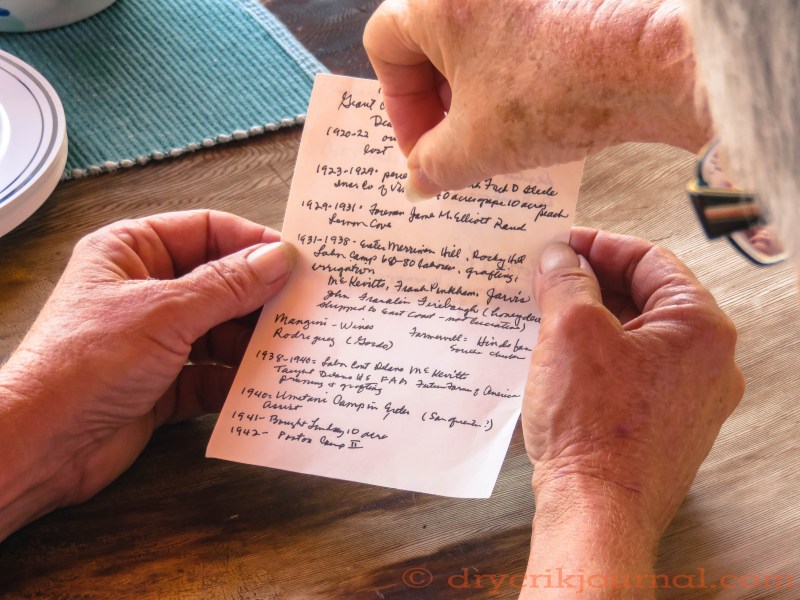 Grant
Dea
1920-22 on
lost
1923-1929- Fred D
Co of 40 acre grape 10 acres peach
1929-1931- Foreman Jane McElliott Rand
Lemon Cove
1931-1938- Exeter Merriman Hill, Rocky Hill
Labor Camp 60-80 laborers, grafting,
irrigation
McKevitts, Frank Pinkham, Jarvis
John Franklin Firebaugh (honeydew
shipped to East Coast - not
Mangini - Wines Farmersville - Hinds
Rodriguez (Gordo)
1938-1940= Labor Cont Delano McKevitt
Taught Delano HS FAA Future Farm of America
pruning & grafting
1940= Umetani Camp in Exeter (San
Assist
1941- Bought Lindsay 10 acre
1942- Poston Camp II
© drycrikjournal.com